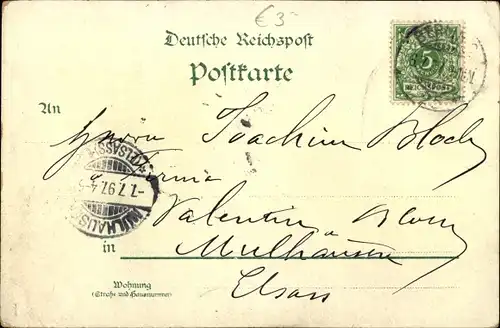 € 3
Deutsche Reichspost
Postkarte
5
REICHSPOST
An
Herrn Joachim Bloch
Firma
-7.7.97.4-5
Valentin Bloch
in Mülhausen
Elsass
Wohnung
(Straße und Hausnummer)